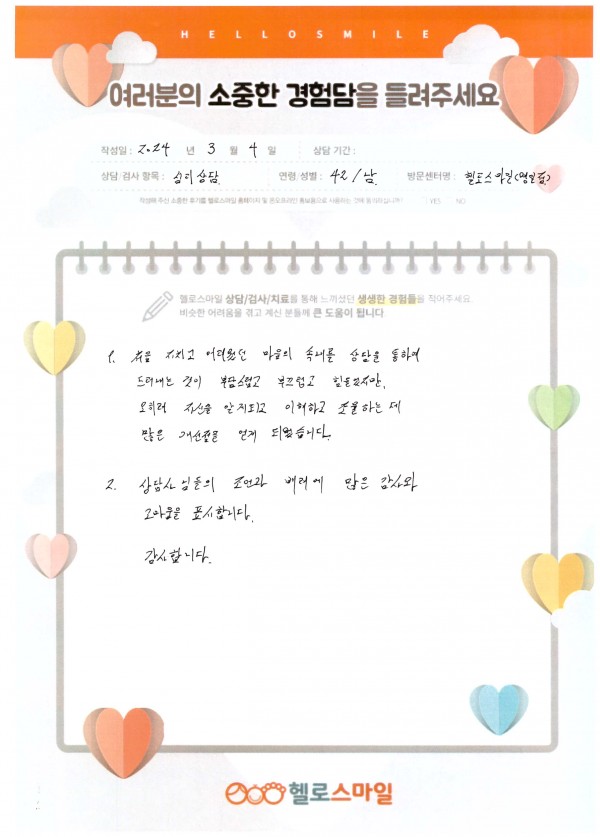 HELLOSMILE
여러분의 소중한 경험담을 들려주세요
작성일 : 2024 년 3 월 4 일 상담 기간 :
상담/검사 항목 : 심리상담. 연령/성별 : 42 / 남. 방문센터명 : 헬로스마일(명일점)
작성해 주신 소중한 후기를 헬로스마일 홈페이지 및 온오프라인 홍보용으로 사용하는 것에 동의하십니까? YES NO
헬로스마일 상담/검사/치료를 통해 느끼셨던 생생한 경험들을 적어주세요.
비슷한 어려움을 겪고 계신 분들께 큰 도움이 됩니다.
1. 지치고 어려웠던 마음의 속내를 상담을 통하여
드러내는 것이 부담스럽고 부끄럽고 힘들었지만,
오히려 자신을 알게되고 이해하고 조율하는 데
많은 개선점을 얻게 되었습니다.
2. 상담사님들의 조언과 배려에 많은 감사와
고마움을 표시합니다.
감사합니다.
헬로스마일